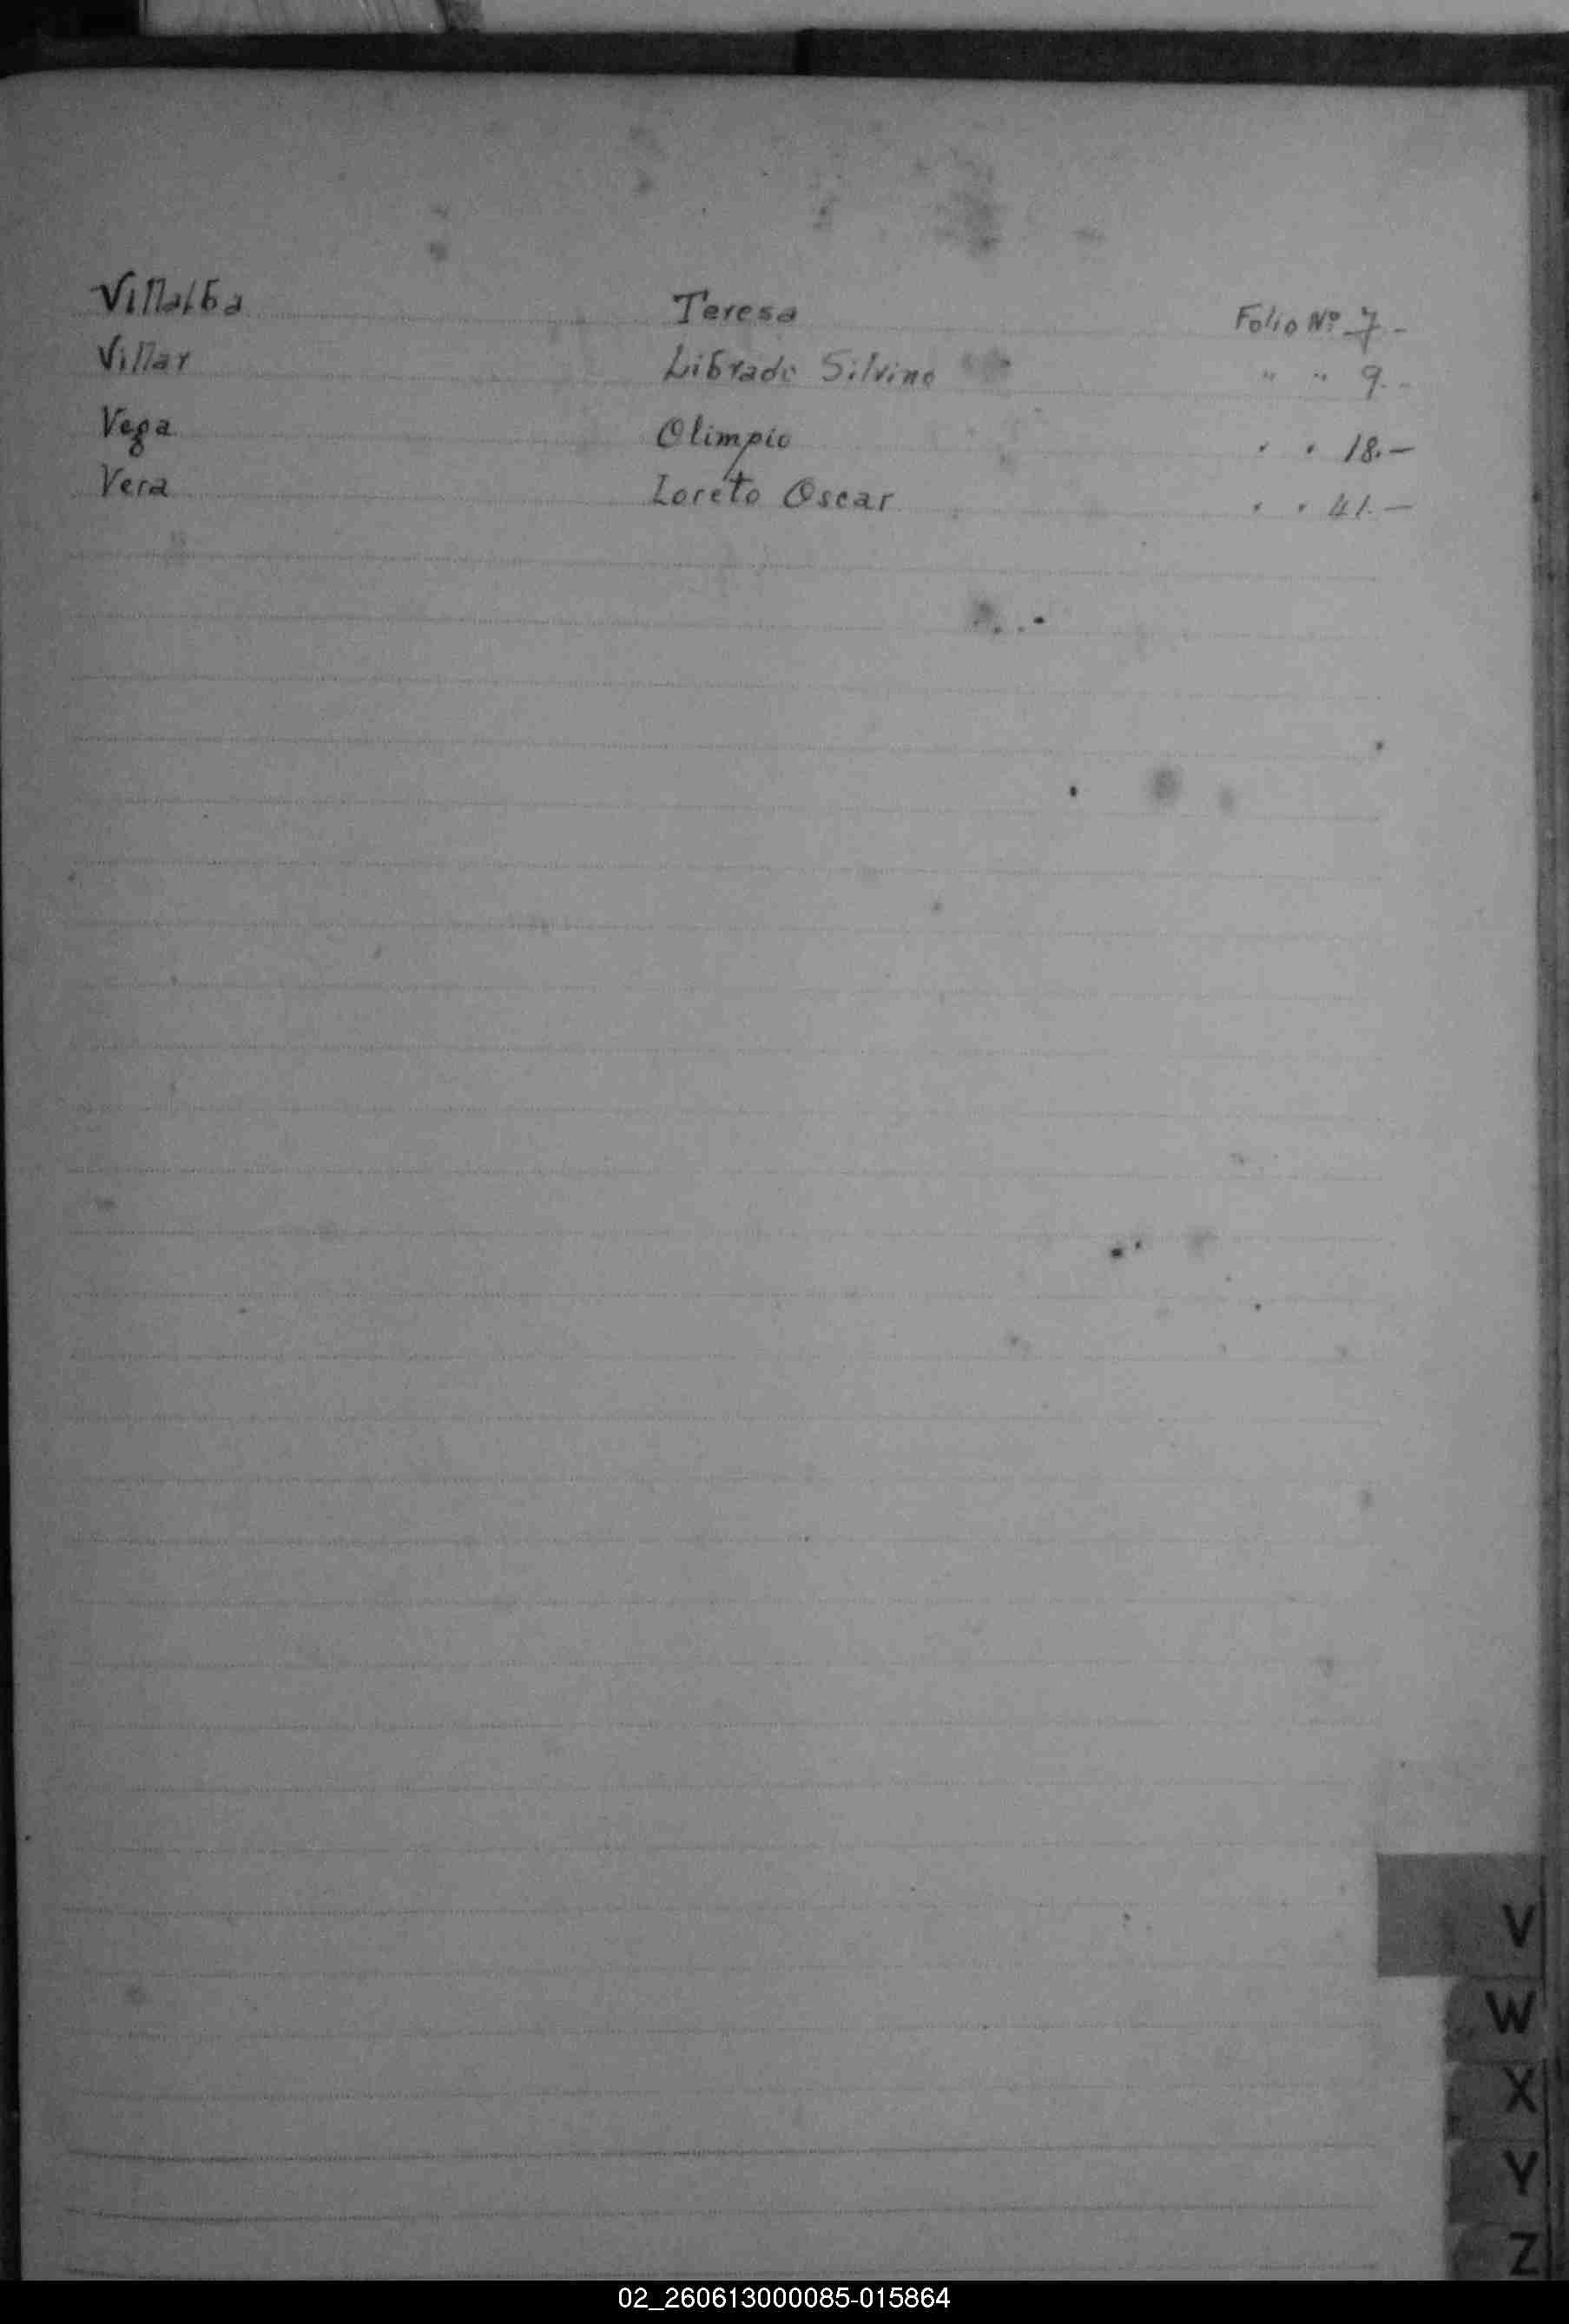 Villalba Teresa Folio Nº 7.-
Villar Librado Silvino " " 9.-
Vega Olimpio " " 18.-
Vera Loreto Oscar " " 41.-
V
W
X
Y
Z
02_260613000085-015864